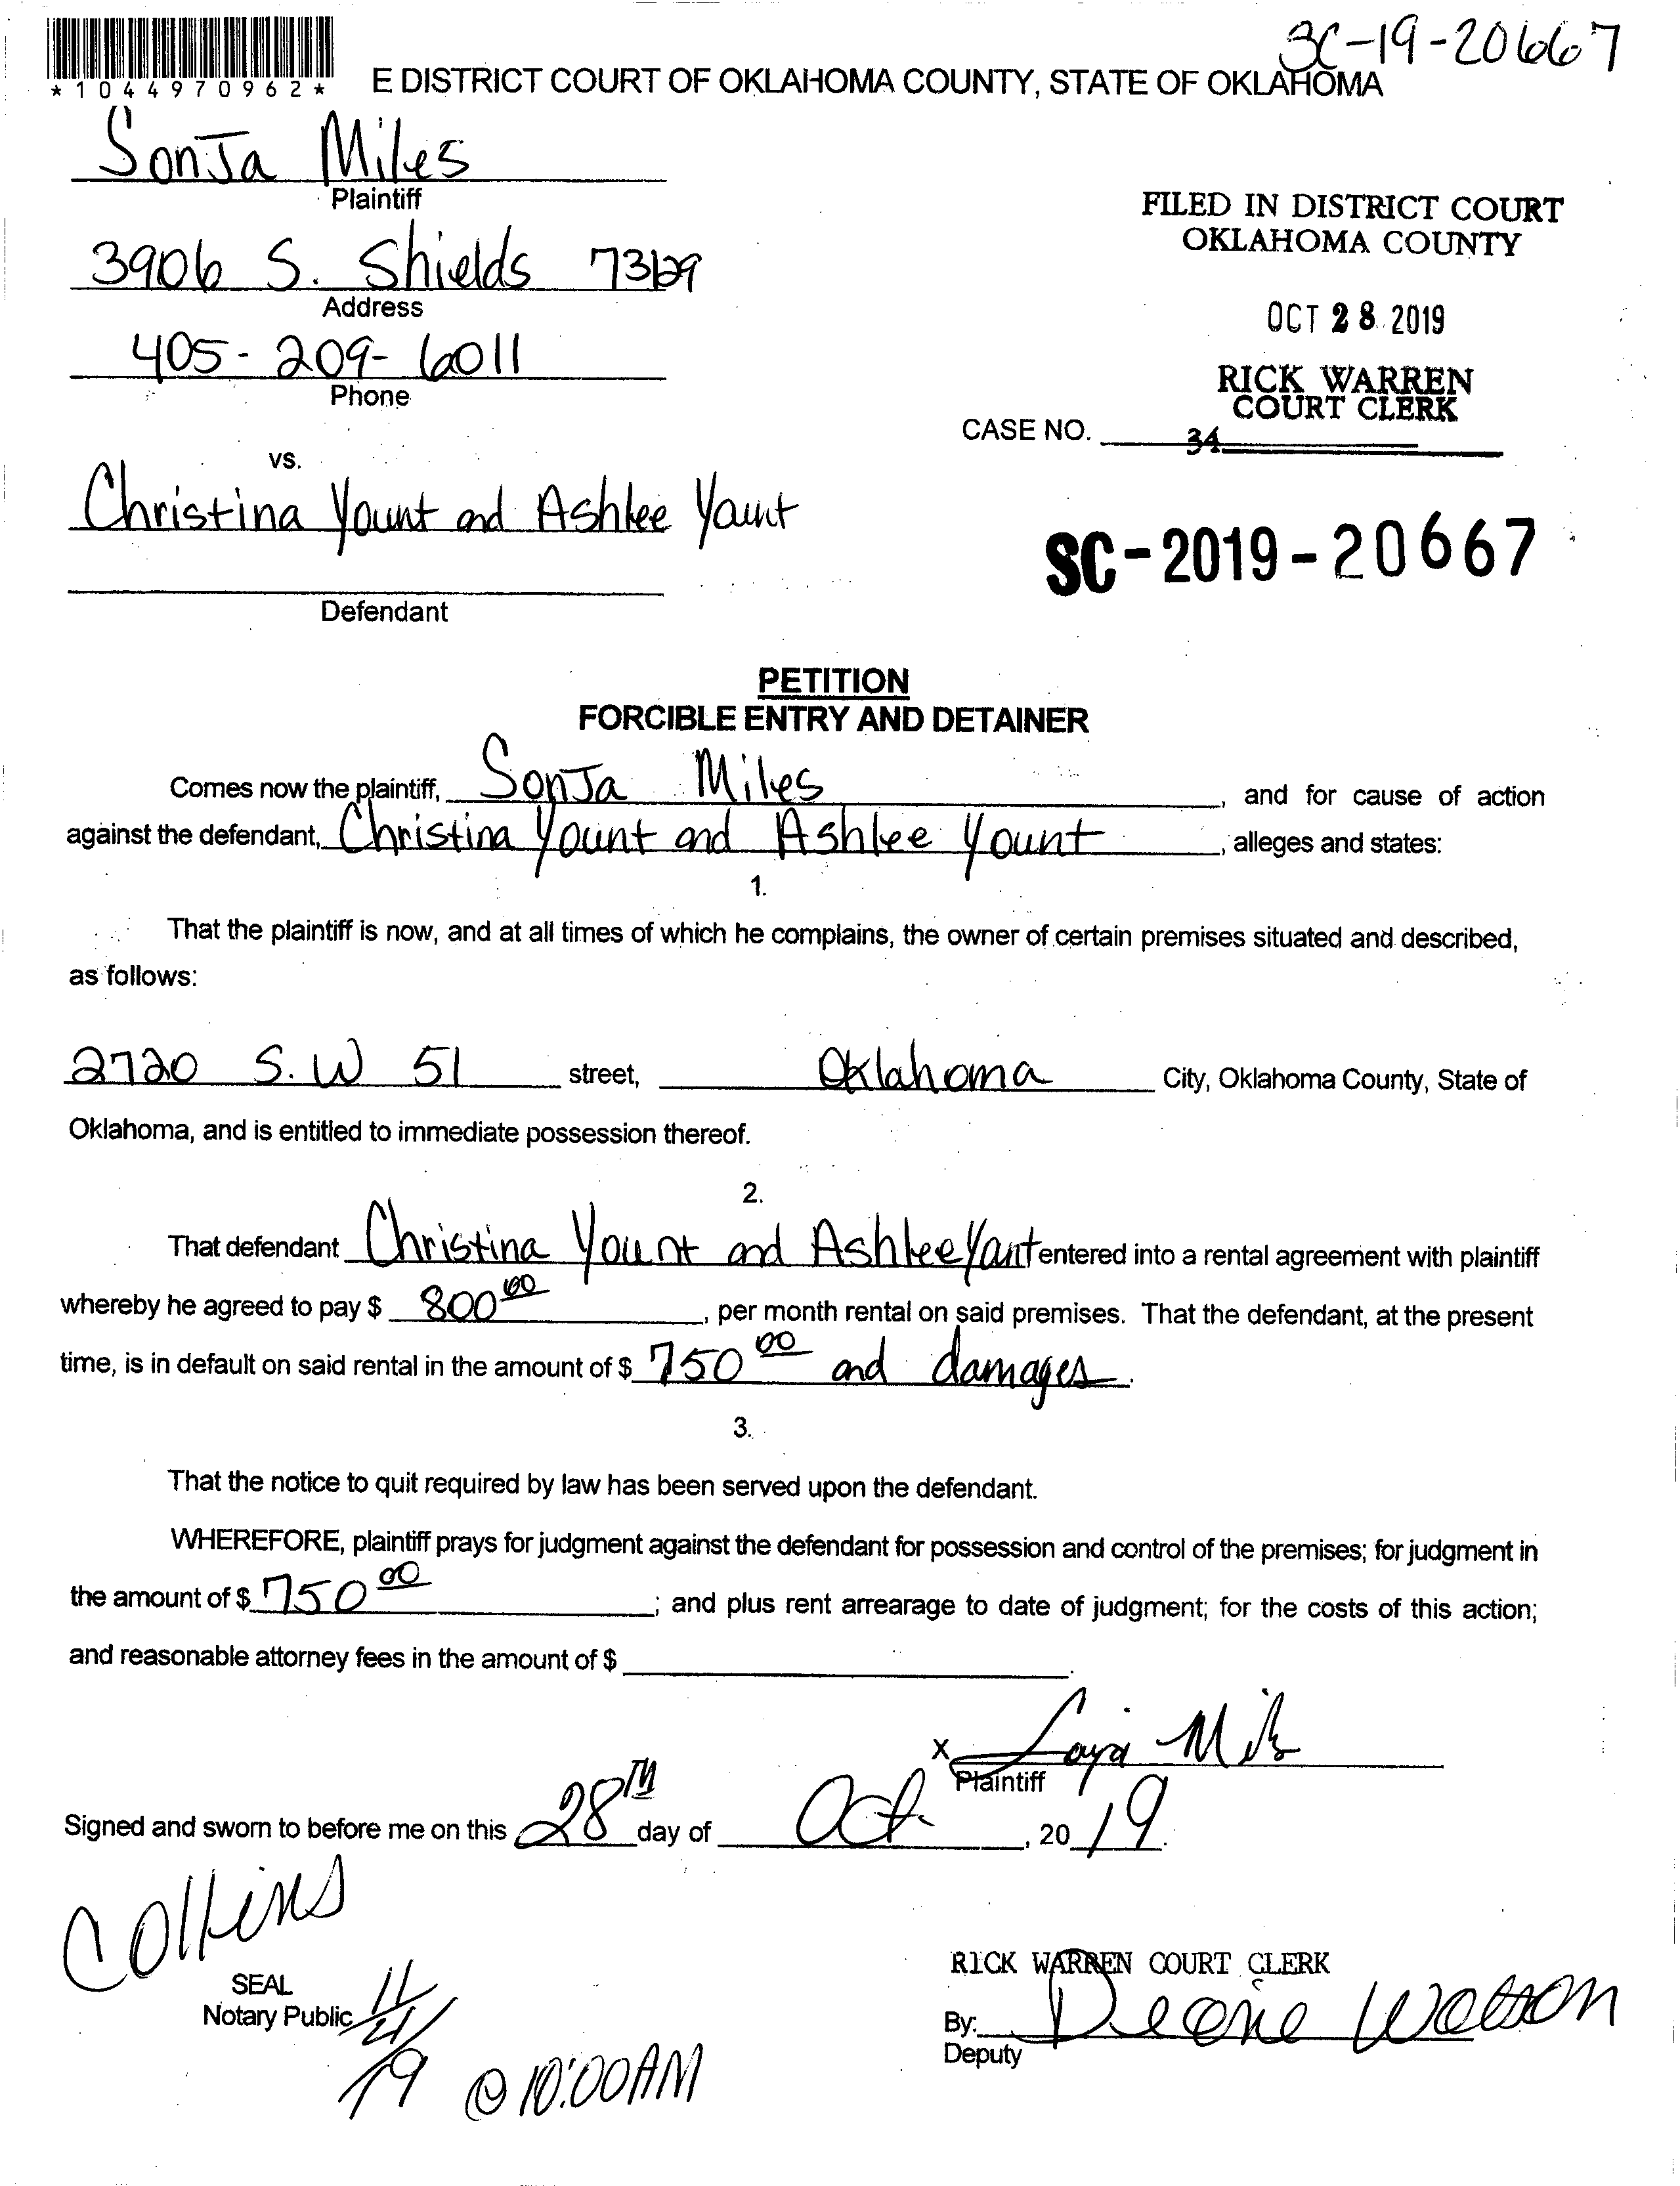 SC-19-20667
*1044970962*
E DISTRICT COURT OF OKLAHOMA COUNTY, STATE OF OKLAHOMA
SonJa Miles
Plaintiff
FILED IN DISTRICT COURT
OKLAHOMA COUNTY
3906 S. Shields 73129
Address
OCT 28 2019
405-209-6011
Phone
RICK WARREN
COURT CLERK
CASE NO.
34
vs.
Christina Yount and Ashlee Yount
SC-2019-20667
Defendant
PETITION
FORCIBLE ENTRY AND DETAINER
Comes now the plaintiff, SonJa Miles, and for cause of action
against the defendant, Christina Yount and Ashlee Yount, alleges and states:
1.
That the plaintiff is now, and at all times of which he complains, the owner of certain premises situated and described,
as follows:
2720 S.W 51 street, Oklahoma City, Oklahoma County, State of
Oklahoma, and is entitled to immediate possession thereof.
2.
That defendant Christina Yount and Ashlee Yount entered into a rental agreement with plaintiff
whereby he agreed to pay $ 800 00, per month rental on said premises. That the defendant, at the present
time, is in default on said rental in the amount of $ 750 00 and damages.
3.
That the notice to quit required by law has been served upon the defendant.
WHEREFORE, plaintiff prays for judgment against the defendant for possession and control of the premises; for judgment in
the amount of $ 750 00; and plus rent arrearage to date of judgment; for the costs of this action;
and reasonable attorney fees in the amount of $.
X
Plaintiff
Signed and sworn to before me on this 28TH day of Oct., 2019.
Collins
RICK WARREN COURT CLERK
SEAL
Notary Public
By:
Deputy
11/21/19 @ 10:00AM